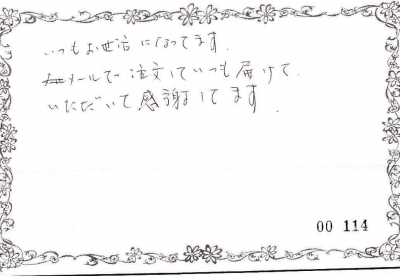 いつもお世話になってます。
メールで注文していつも届けて
いただいて感謝してます
00 114